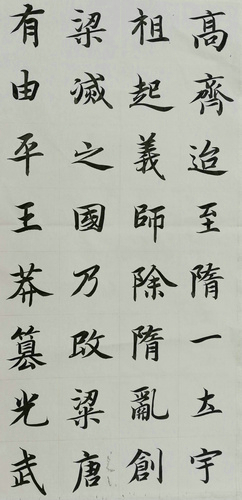 高齊迨至隋一土宇
祖起義師除隋亂創
梁滅之國乃改梁唐
有由平王莽篡光武